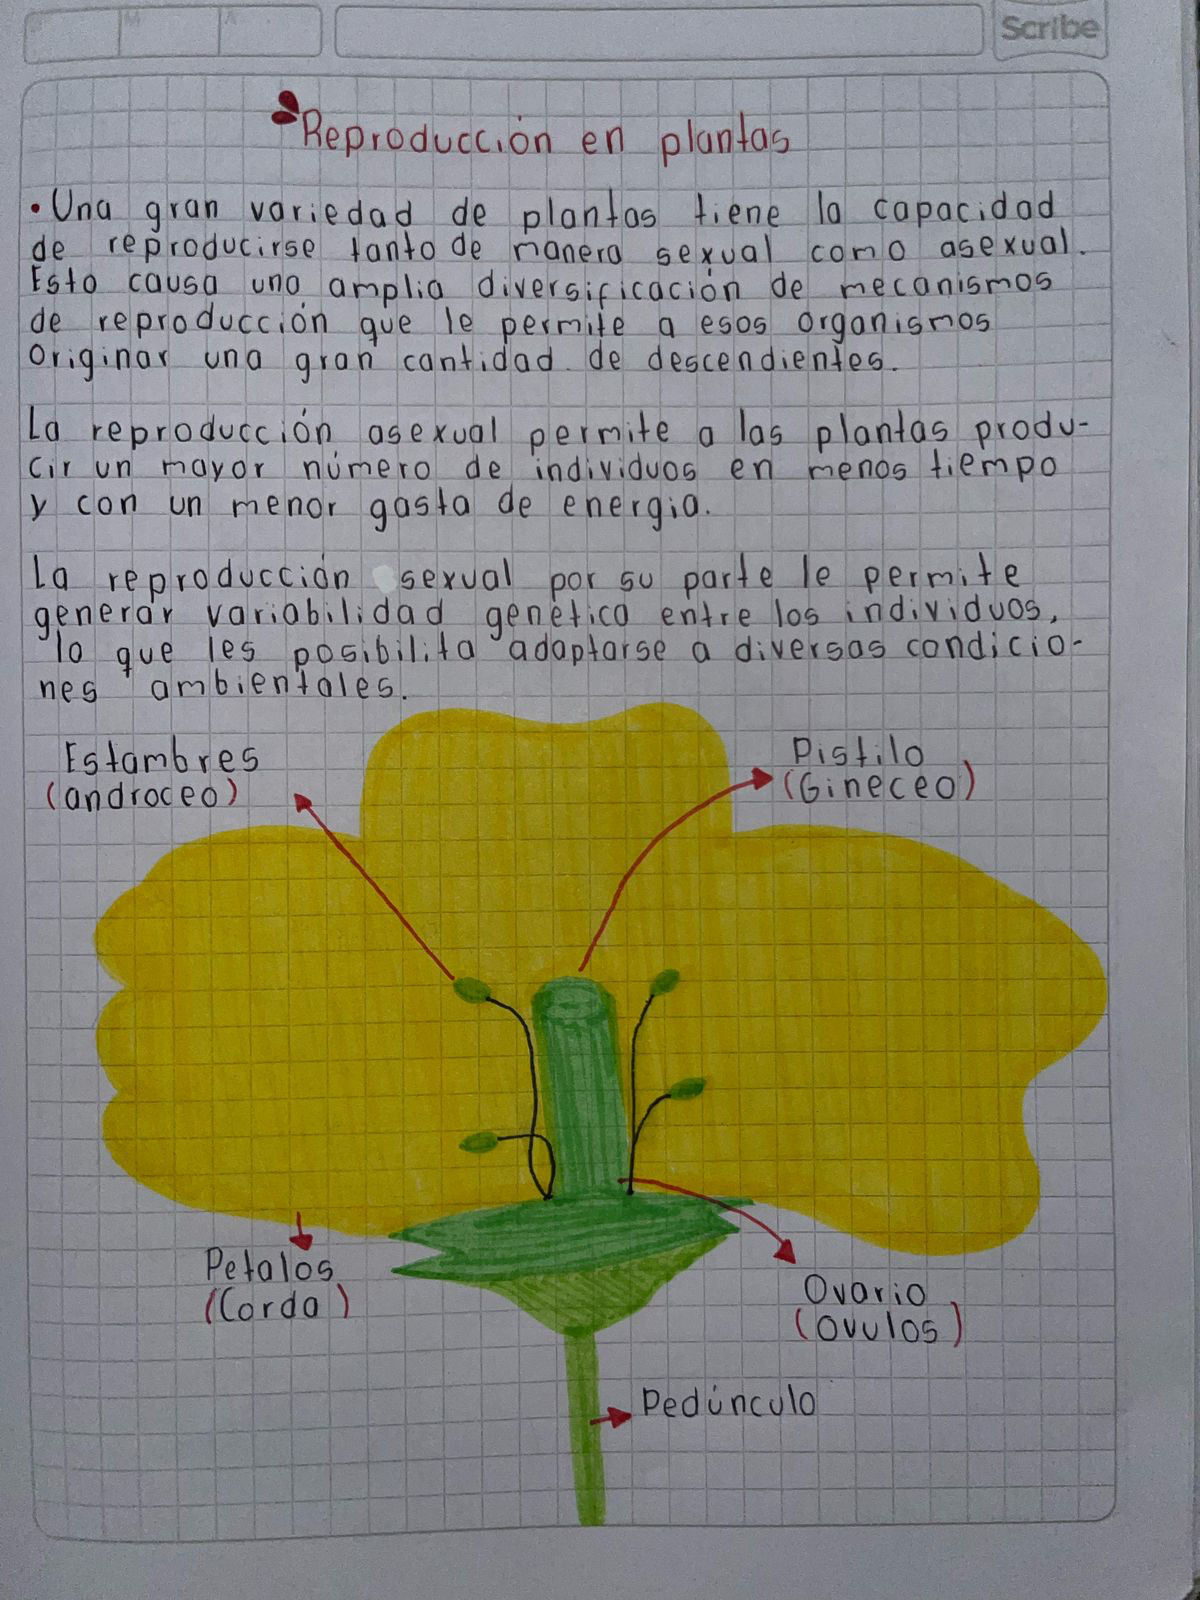 Scribe
Reproducción en plantas
• Una gran variedad de plantas tiene la capacidad
de reproducirse tanto de manera sexual como asexual.
Esto causa una amplia diversificación de mecanismos
de reproducción que le permite a esos organismos
originar una gran cantidad de descendientes.
La reproducción asexual permite a las plantas produ-
cir un mayor número de individuos en menos tiempo
y con un menor gasta de energia.
La reproducción sexual por su parte le permite
generar variabilidad genetica entre los individuos,
lo que les posibilita adaptarse a diversas condicio-
nes ambientales.
Estambres
(androceo)
Pistilo
(Gineceo)
Petalos
(Corda)
Ovario
(ovulos)
Pedúnculo